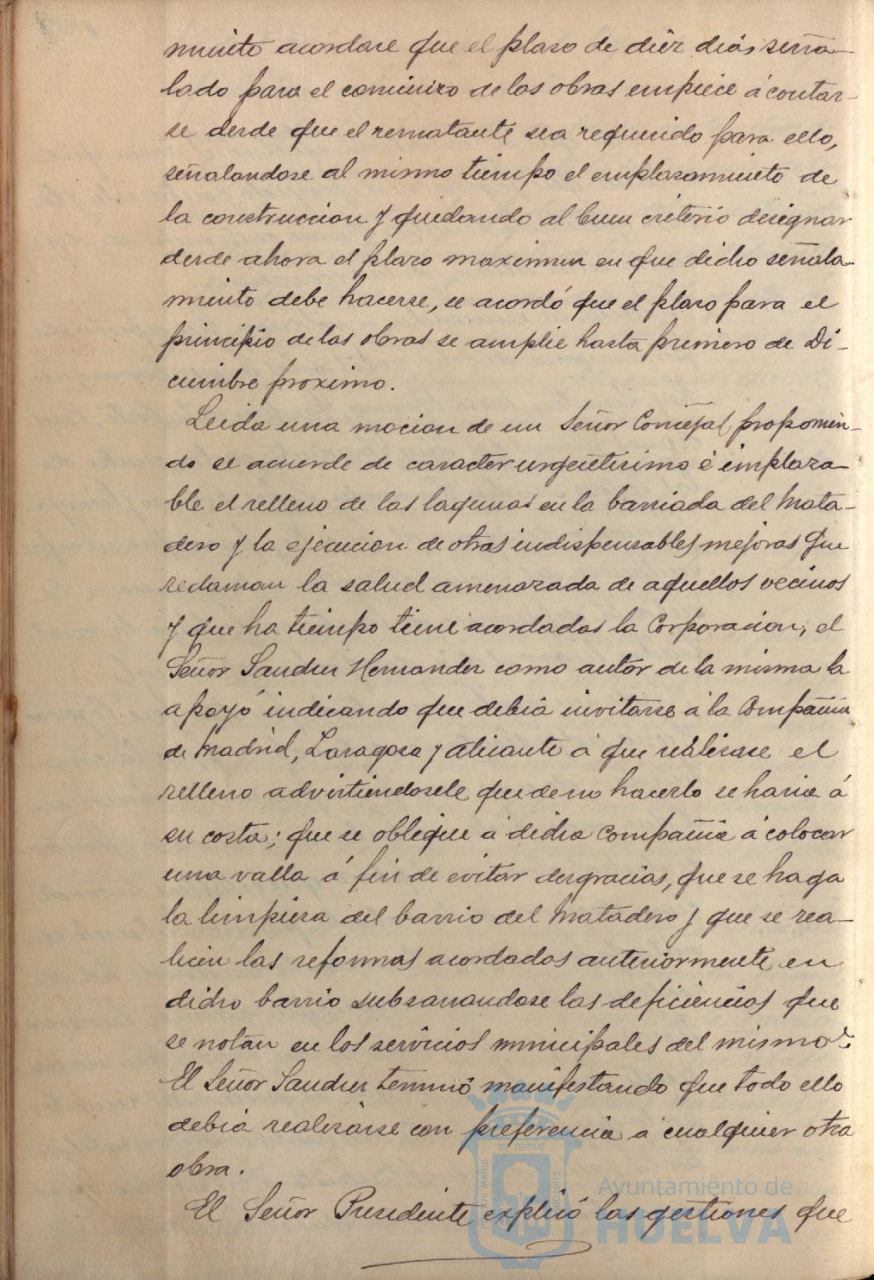 miento acordase que el plazo de diez dias seña-
lado para el comienzo de las obras empiece á contar-
se desde que el rematante sea requerido para ello,
señalandose al mismo tiempo el emplazamiento de
la construccion y quedando al buen criterio designar
desde ahora el plazo maximun en que dicho señala-
miento debe hacerse, se acordó que el plazo para el
principio de las obras se amplie hasta primero de Di-
ciembre proximo.
Leida una mocion de un Señor Concejal proponien-
do se acuerde de caracter urgentisimo é implaza-
ble el relleno de las lagunas en la barriada del Mata-
dero y la ejecucion de otras indispensables mejoras que
reclaman la salud amenazada de aquellos vecinos
y que ha tiempo tiene acordadas la Corporacion, el
Señor Sanchez Hernandez como autor de la misma la
apoyó indicando que debia invitarse á la Compañia
de Madrid, Zaragoza y Alicante á que realizase el
relleno advirtiendosele que de no hacerlo se haria á
su costa; que se obligue á dicha Compañia á colocar
una valla á fin de evitar desgracias, que se haga
la limpieza del barrio del Matadero y que se rea-
licen las reformas acordadas anteriormente en
dicho barrio subsanandose las deficiencias que
se notan en los servicios municipales del mismo.
El Señor Sanchez terminó manifestando que todo ello
debia realizarse con preferencia á cualquier otra
obra.
El Señor Presidente explicó las gestiones que
Ayuntamiento de
HUELVA